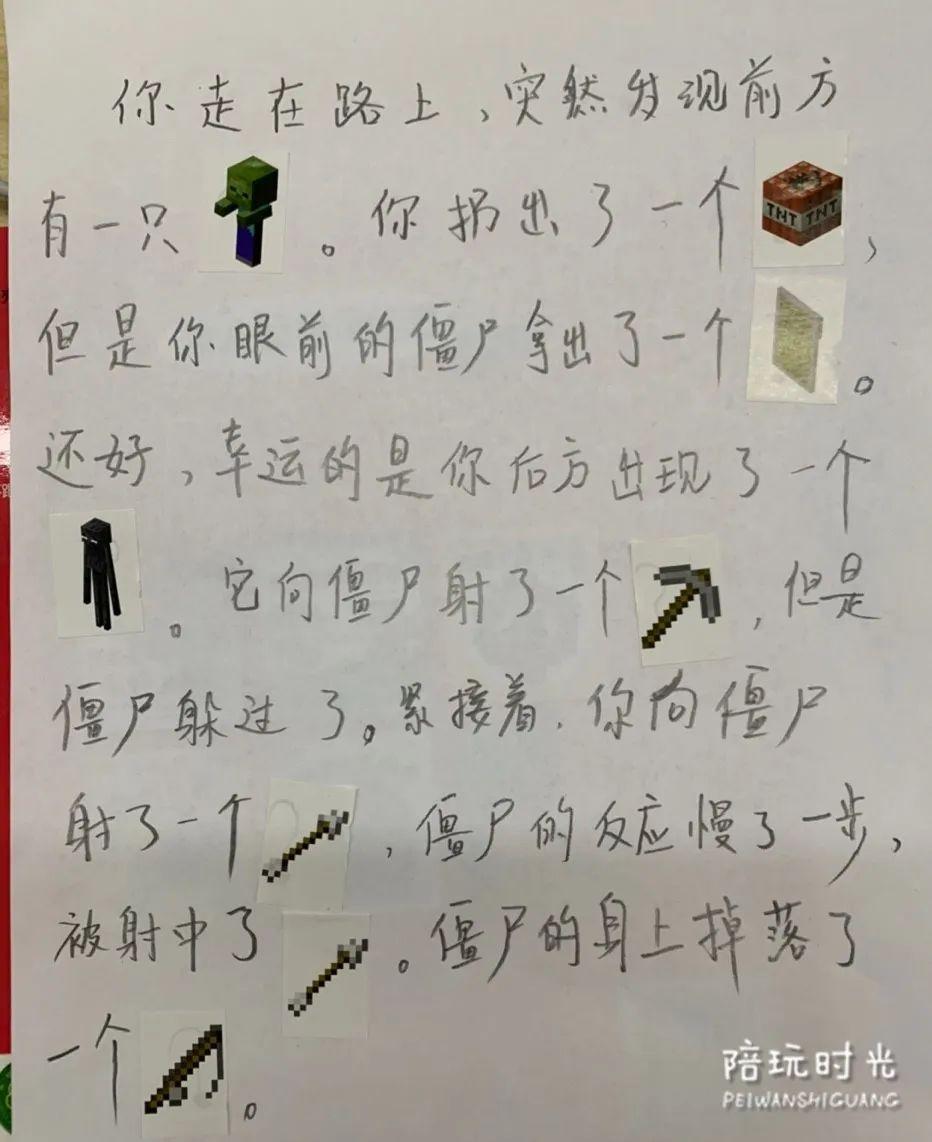 你走在路上，突然发现前方
有一只。你扔出了一个TNT TNT，
但是你眼前的僵尸拿出了一个。
还好，幸运的是你后方出现了一个
。它向僵尸射了一个，但是
僵尸躲过了。紧接着，你向僵尸
射了一个，僵尸的反应慢了一步，
被射中了。僵尸的身上掉落了
一个。
陪玩时光
PEIWANSHIGUANG